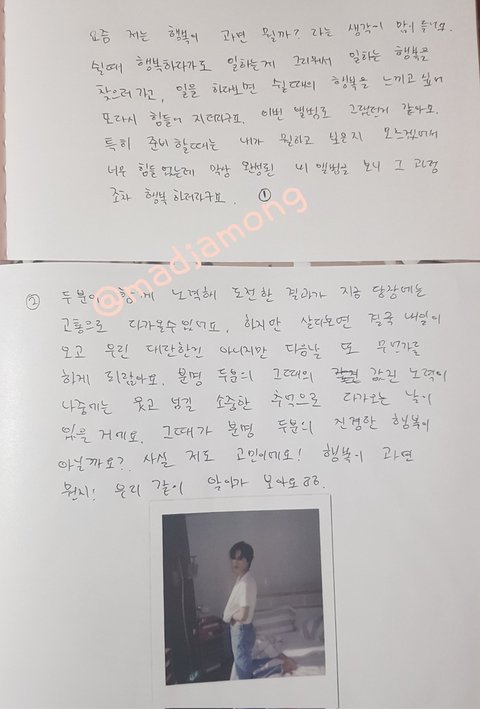 요즘 저는 행복이 과연 뭘까? 라는 생각이 많이 듭니다.
쉴때 행복하다가도 일하는게 그리워서 일하는 행복을
찾으러 가고, 일을 하다보면 쉴때의 행복을 느끼고 싶어
또다시 힘들어 지더라구요. 이번 앨범도 그랬던거 같아요.
특히 준비할때는 내가 뭘하고 싶은지 모르겠어서
너무 힘들었는데 막상 완성된 내 앨범을 보니 그 과정
조차 행복하더라구요. ①
@madjamong
② 두분이 함께 노력해 도전한 결과가 지금 당장에는
고통으로 다가올수 있어요. 하지만 살다보면 결국 내일이
오고 우린 대단한건 아니지만 다음날 또 무언가를
하게 되잖아요. 분명 두분의 그때의 값진 노력이
나중에는 웃고 넘길 소중한 추억으로 다가오는 날이
있을 거에요. 그때가 분명 두분의 진정한 행복이
아닐까요? 사실 저도 고민이에요! 행복이 과연
뭔지! 우리 같이 알아가 보아요